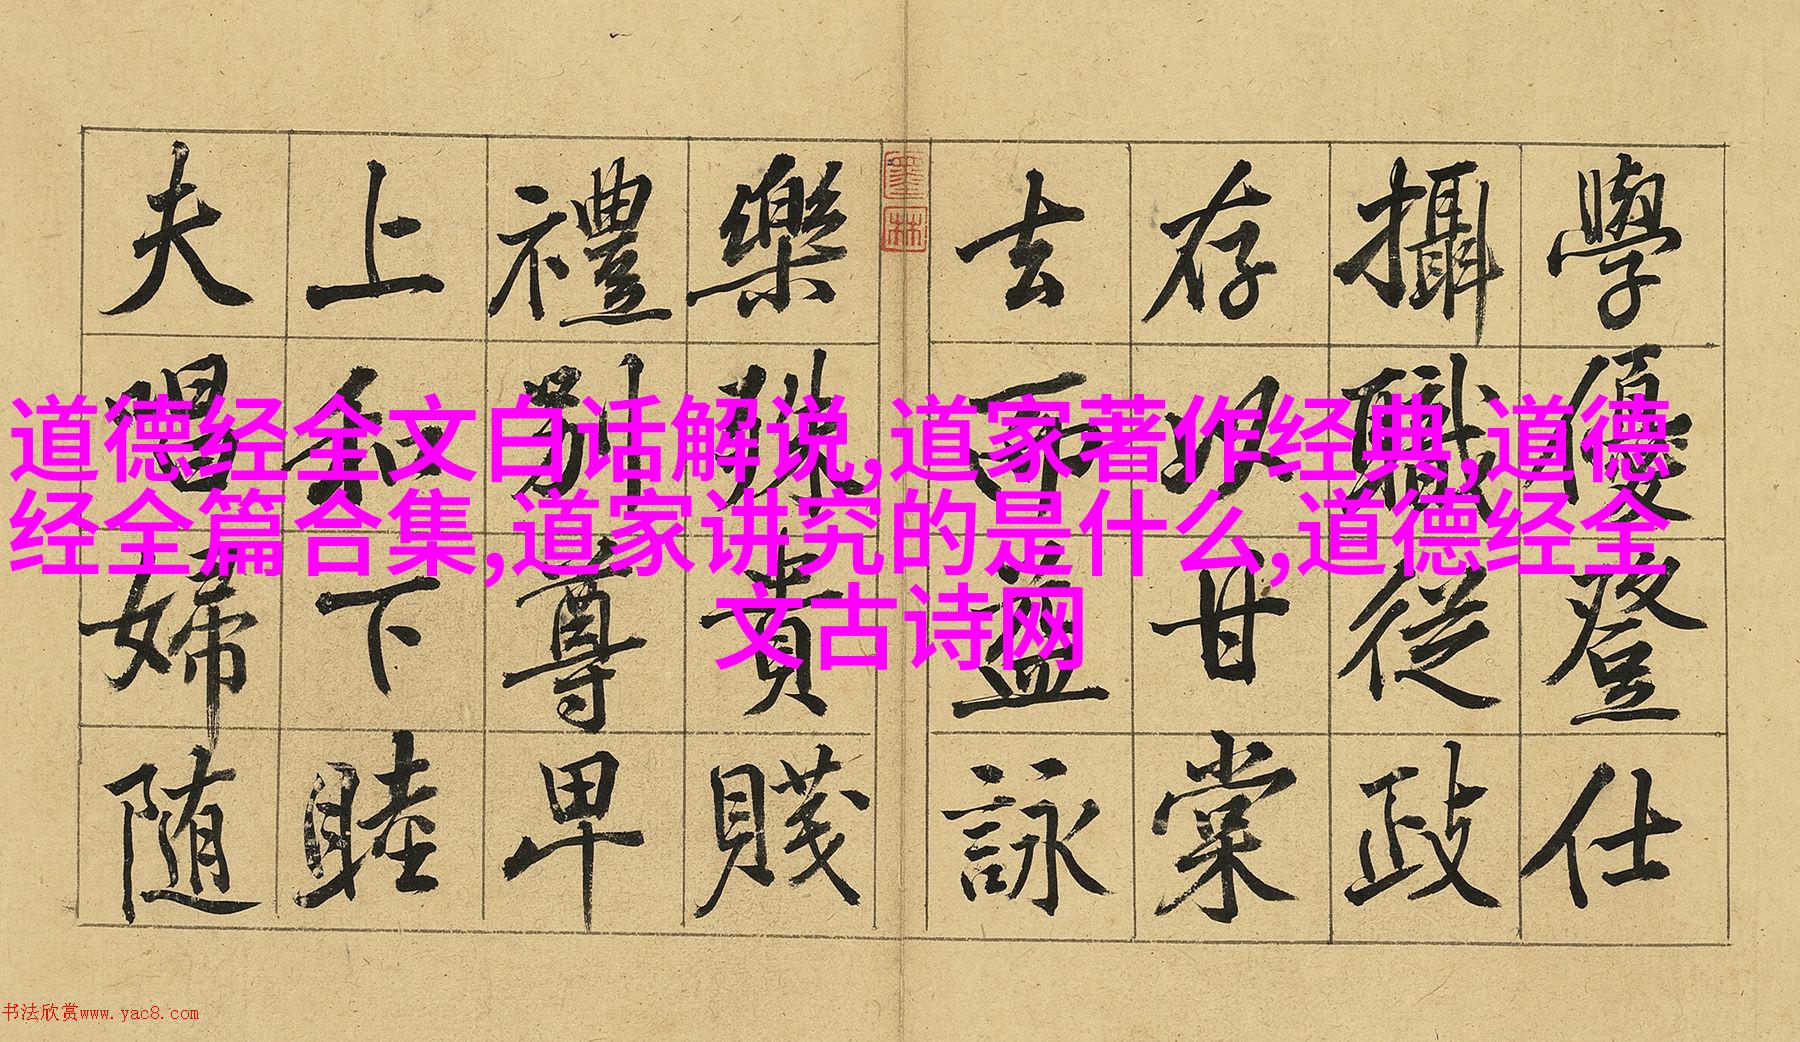 學優登仕
攝職從政
存以甘棠
去而益詠
墨林
樂殊貴賤
禮別尊卑
上和下睦
夫唱婦随
道德经全文白话解说,道家著作经典,道德
经全篇合集,道家讲究的是什么,道德经全
文古诗网
书法欣赏www.yac8.com